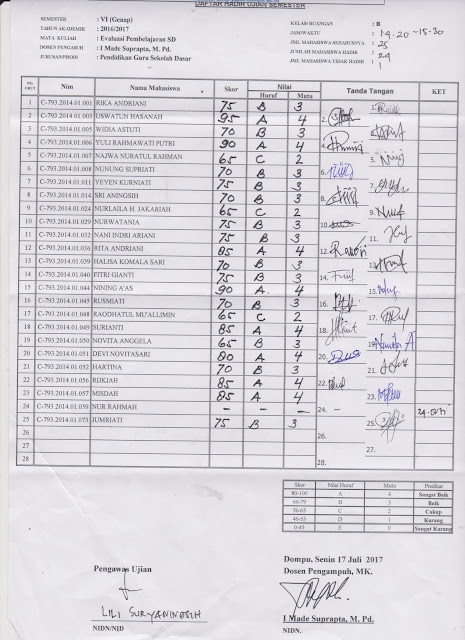 DAFTAR HADIR UJIAN SEMESTER
SEMESTER : VI (Genap)
TAHUN AKADEMIK : 2016/2017
MATA KULIAH : Evaluasi Pembelajaran SD
DOSEN PENGASUH : I Made Suprapta, M. Pd.
JURUSAN/PRODI : Pendidikan Guru Sekolah Dasar
KELAS/RUANGAN : B
JAM/WAKTU : 14.20 - 15.30
JML MAHASISWA SEHARUSNYA : 25
JUMLAH MAHASISWA HADIR : 24
JML MAHASISWA TIDAK HADIR : 1
NO. URUT Nim Nama Mahasiswa Skor Nilai Huruf Mutu Tanda Tangan KET
1 C-793.2014.01.001 RIKA ANDRIANI 75 B 3 1.
2 C-793.2014.01.003 USWATUN HASANAH 95 A 4 2.
3 C-793.2014.01.005 WIDIA ASTUTI 70 B 3
4 C-793.2014.01.006 YULI RAHMAWATI PUTRI 90 A 4 4.
5 C-793.2014.01.007 NAJWA NURATUL RAHMAN 65 C 2 5.
6 C-793.2014.01.008 NUNUNG SUPRIATI 70 B 3 6.
7 C-793.2014.01.011 YEYEN KURNIATI 75 B 3 7.
8 C-793.2014.01.014 SRI ANINGSIH 70 B 3 8.
9 C-793.2014.01.024 NURLAILA H. JAKARIAH 65 C 2 9.
10 C-793.2014.01.029 NURWATANIA 75 B 3 10.
11 C-793.2014.01.032 NANI INDRI ARIANI 75 B 3 11.
12 C-793.2014.01.036 RITA ANDRIANI 85 A 4 12.
13 C-793.2014.01.039 HALISA KOMALA SARI 70 B 3 13.
14 C-793.2014.01.040 FITRI GIANTI 75 B 3 14.
15 C-793.2014.01.044 NINING A'AS 90 A 4 15.
16 C-793.2014.01.045 RUSMIATI 70 B 3 16.
17 C-793.2014.01.048 RAODHATUL MU'ALLIMIN 65 C 2 17.
18 C-793.2014.01.049 SURIANTI 85 A 4 18.
19 C-793.2014.01.050 NOVITA ANGGELA 65 B 3 19.
20 C-793.2014.01.051 DEVI NOVITASARI 80 A 4 20.
21 C-793.2014.01.052 HARTINA 70 B 3 21.
22 C-793.2014.01.056 RIJKIAH 85 A 4 22.
23 C-793.2014.01.057 MISDAH 85 A 4 23.
24 C-793.2014.01.059 NUR RAHMAH - - - 24. -
25 C-793.2014.01.073 JUMRIATI 75 B 3 25.
26 26.
27 27.
28 28.
Skor Nilai Huruf Mutu Predikat
80-100 A 4 Sangat Baik
66-79 B 3 Baik
56-65 C 2 Cukup
46-55 D 1 Kurang
0-45 E 0 Sangat Kurang
Dompu, Senin 17 Juli 2017
Pengawas Ujian
Dosen Pengampuh, MK.
LILI SURYANINGSIH
I Made Suprapta, M. Pd.
NIDN/NID
NIDN.